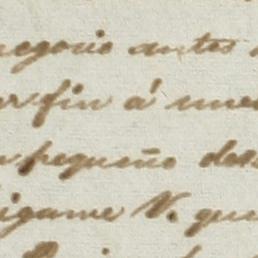 negocio antes
por fin á nues
pequeño des
digame V. que